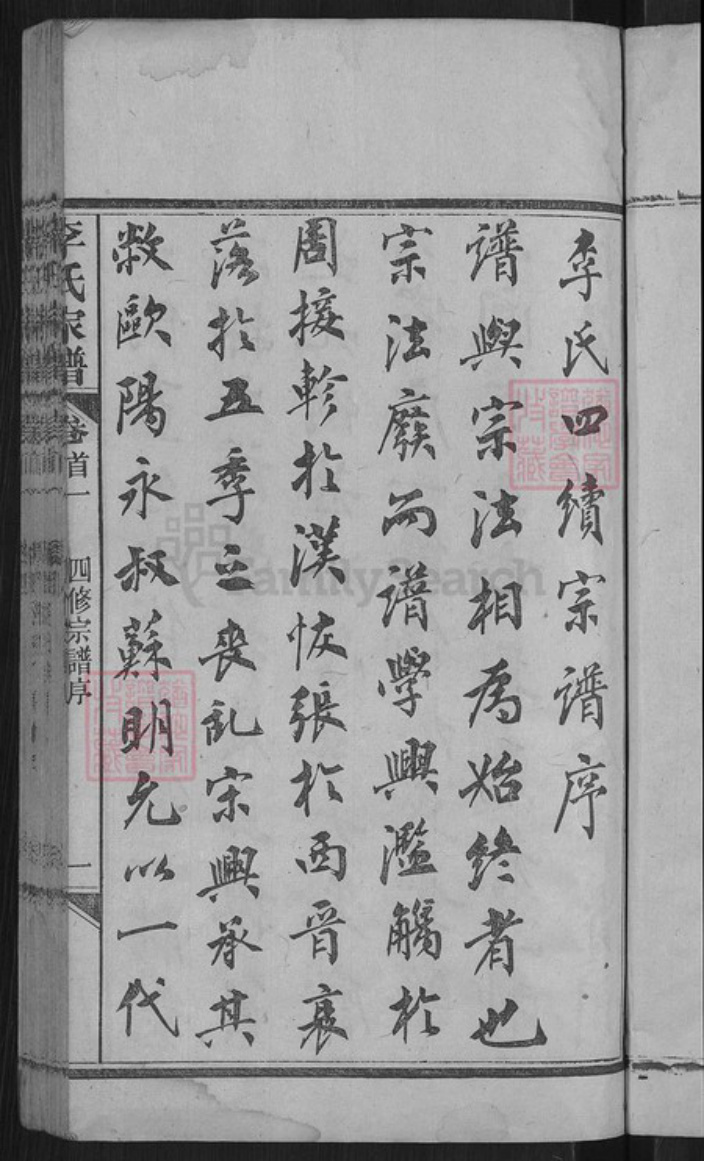 李氏四續宗譜序
譜與宗法相為始終者也
宗法廢而譜學興濫觴於
周接軫於漢恢張於西晉衰
落於五季之喪乱宋興承其
敝歐陽永叔蘇明允以一代
李氏家譜
卷首一
四修宗譜序
一
FamilySearch